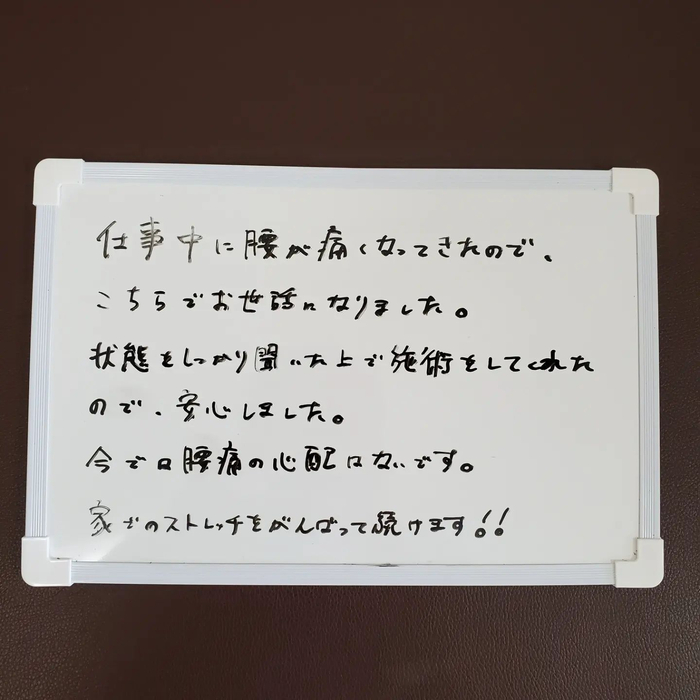 仕事中に腰が痛くなってきたので、
こちらでお世話になりました。
状態をしっかり聞いた上で施術をしてくれた
ので、安心しました。
今では腰痛の心配はないです。
家でのストレッチをがんばって続けます!!